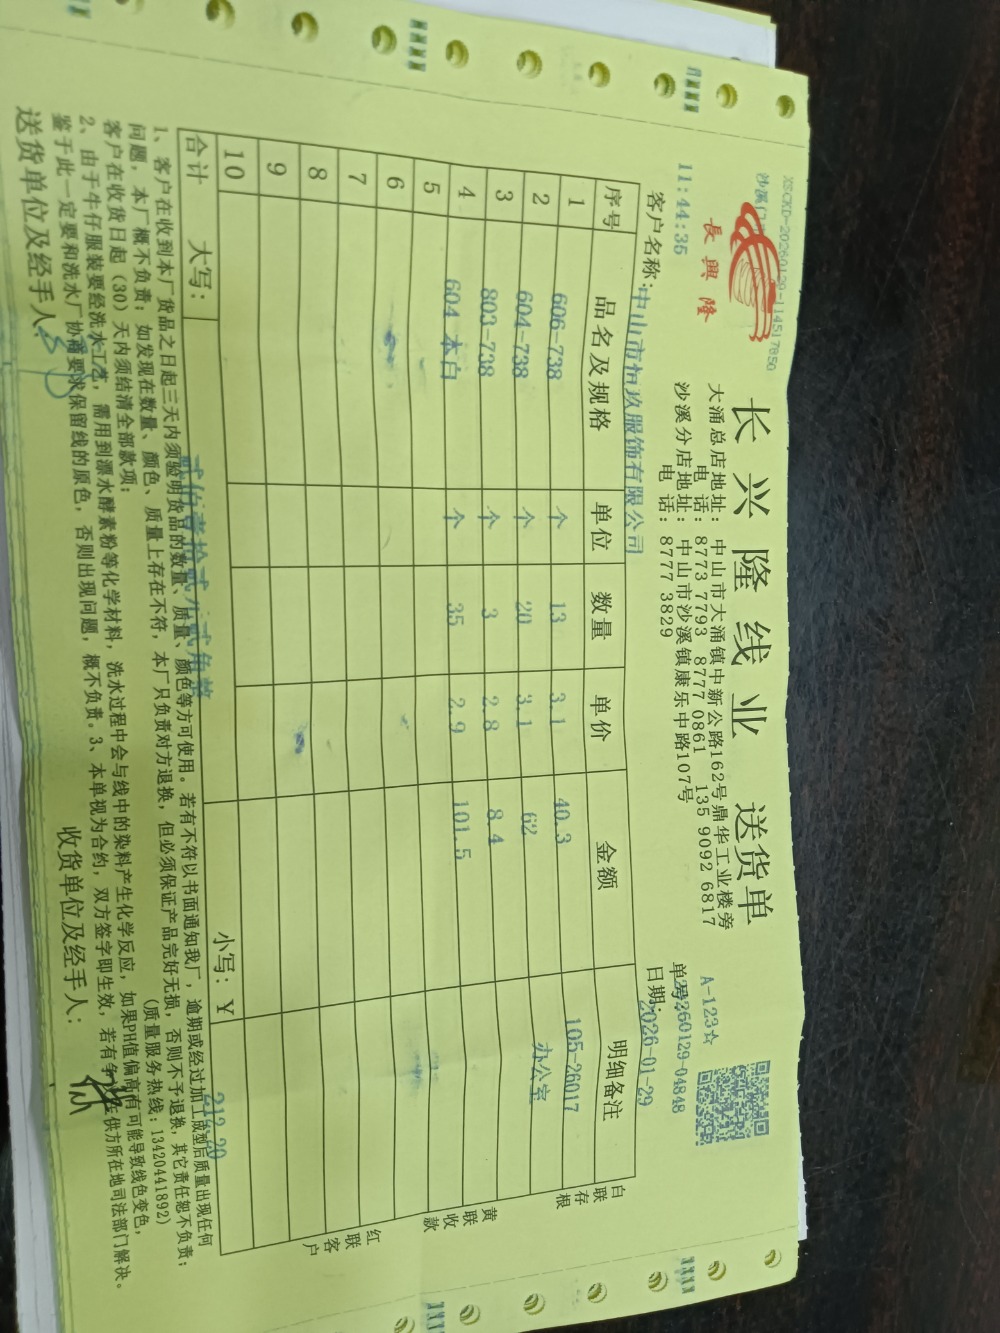 XSCKD-20260129-114517850
長興隆
11:44:35
长兴隆线业 送货单
大涌总店地址：中山市大涌镇中新公路162号鼎华工业楼旁
电 话：8773 7793 8777 0861 135 9092 6817
沙溪分店地址：中山市沙溪镇康乐中路107号
电 话：8777 3829
A-123☆
单号：20260129-04848
日期：2026-01-29
客户名称：中山市恒玖服饰有限公司
序号 品名及规格 单位 数量 单价 金额 明细备注
1 606-738 个 13 3.1 40.3 105-26017
2 604-738 个 20 3.1 62 办公室
3 803-738 个 3 2.8 8.4
4 604 本白 个 35 2.9 101.5
5
6
7
8
9
10
合计 大写：贰佰壹拾贰元贰角整 小写：￥ 212.20
1、客户在收到本厂货品之日起三天内须验明货品的数量、质量、颜色等方可使用。若有不符以书面通知我厂，逾期或经过加工成型后质量出现任何
问题，本厂概不负责；如发现在数量、颜色、质量上存在不符，本厂只负责对方退换，但必须保证产品完好无损，否则不予退换，其它责任恕不负责；
客户在收货日起(30)天内须结清全部款项； (质量服务热线：13420441892)
2、由于牛仔服装要经洗水工艺，需用到漂水酵素粉等化学材料，洗水过程中会与线中的染料产生化学反应，如果PH值偏高有可能导致线色变色，
鉴于此一定要和洗水厂协商要求保留线的原色，否则出现问题，概不负责。3、本单视为合约，双方签字即生效，若有争 供方所在地司法部门解决。
送货单位及经手人： 收货单位及经手人：
白联存根
黄联收款
红联客户